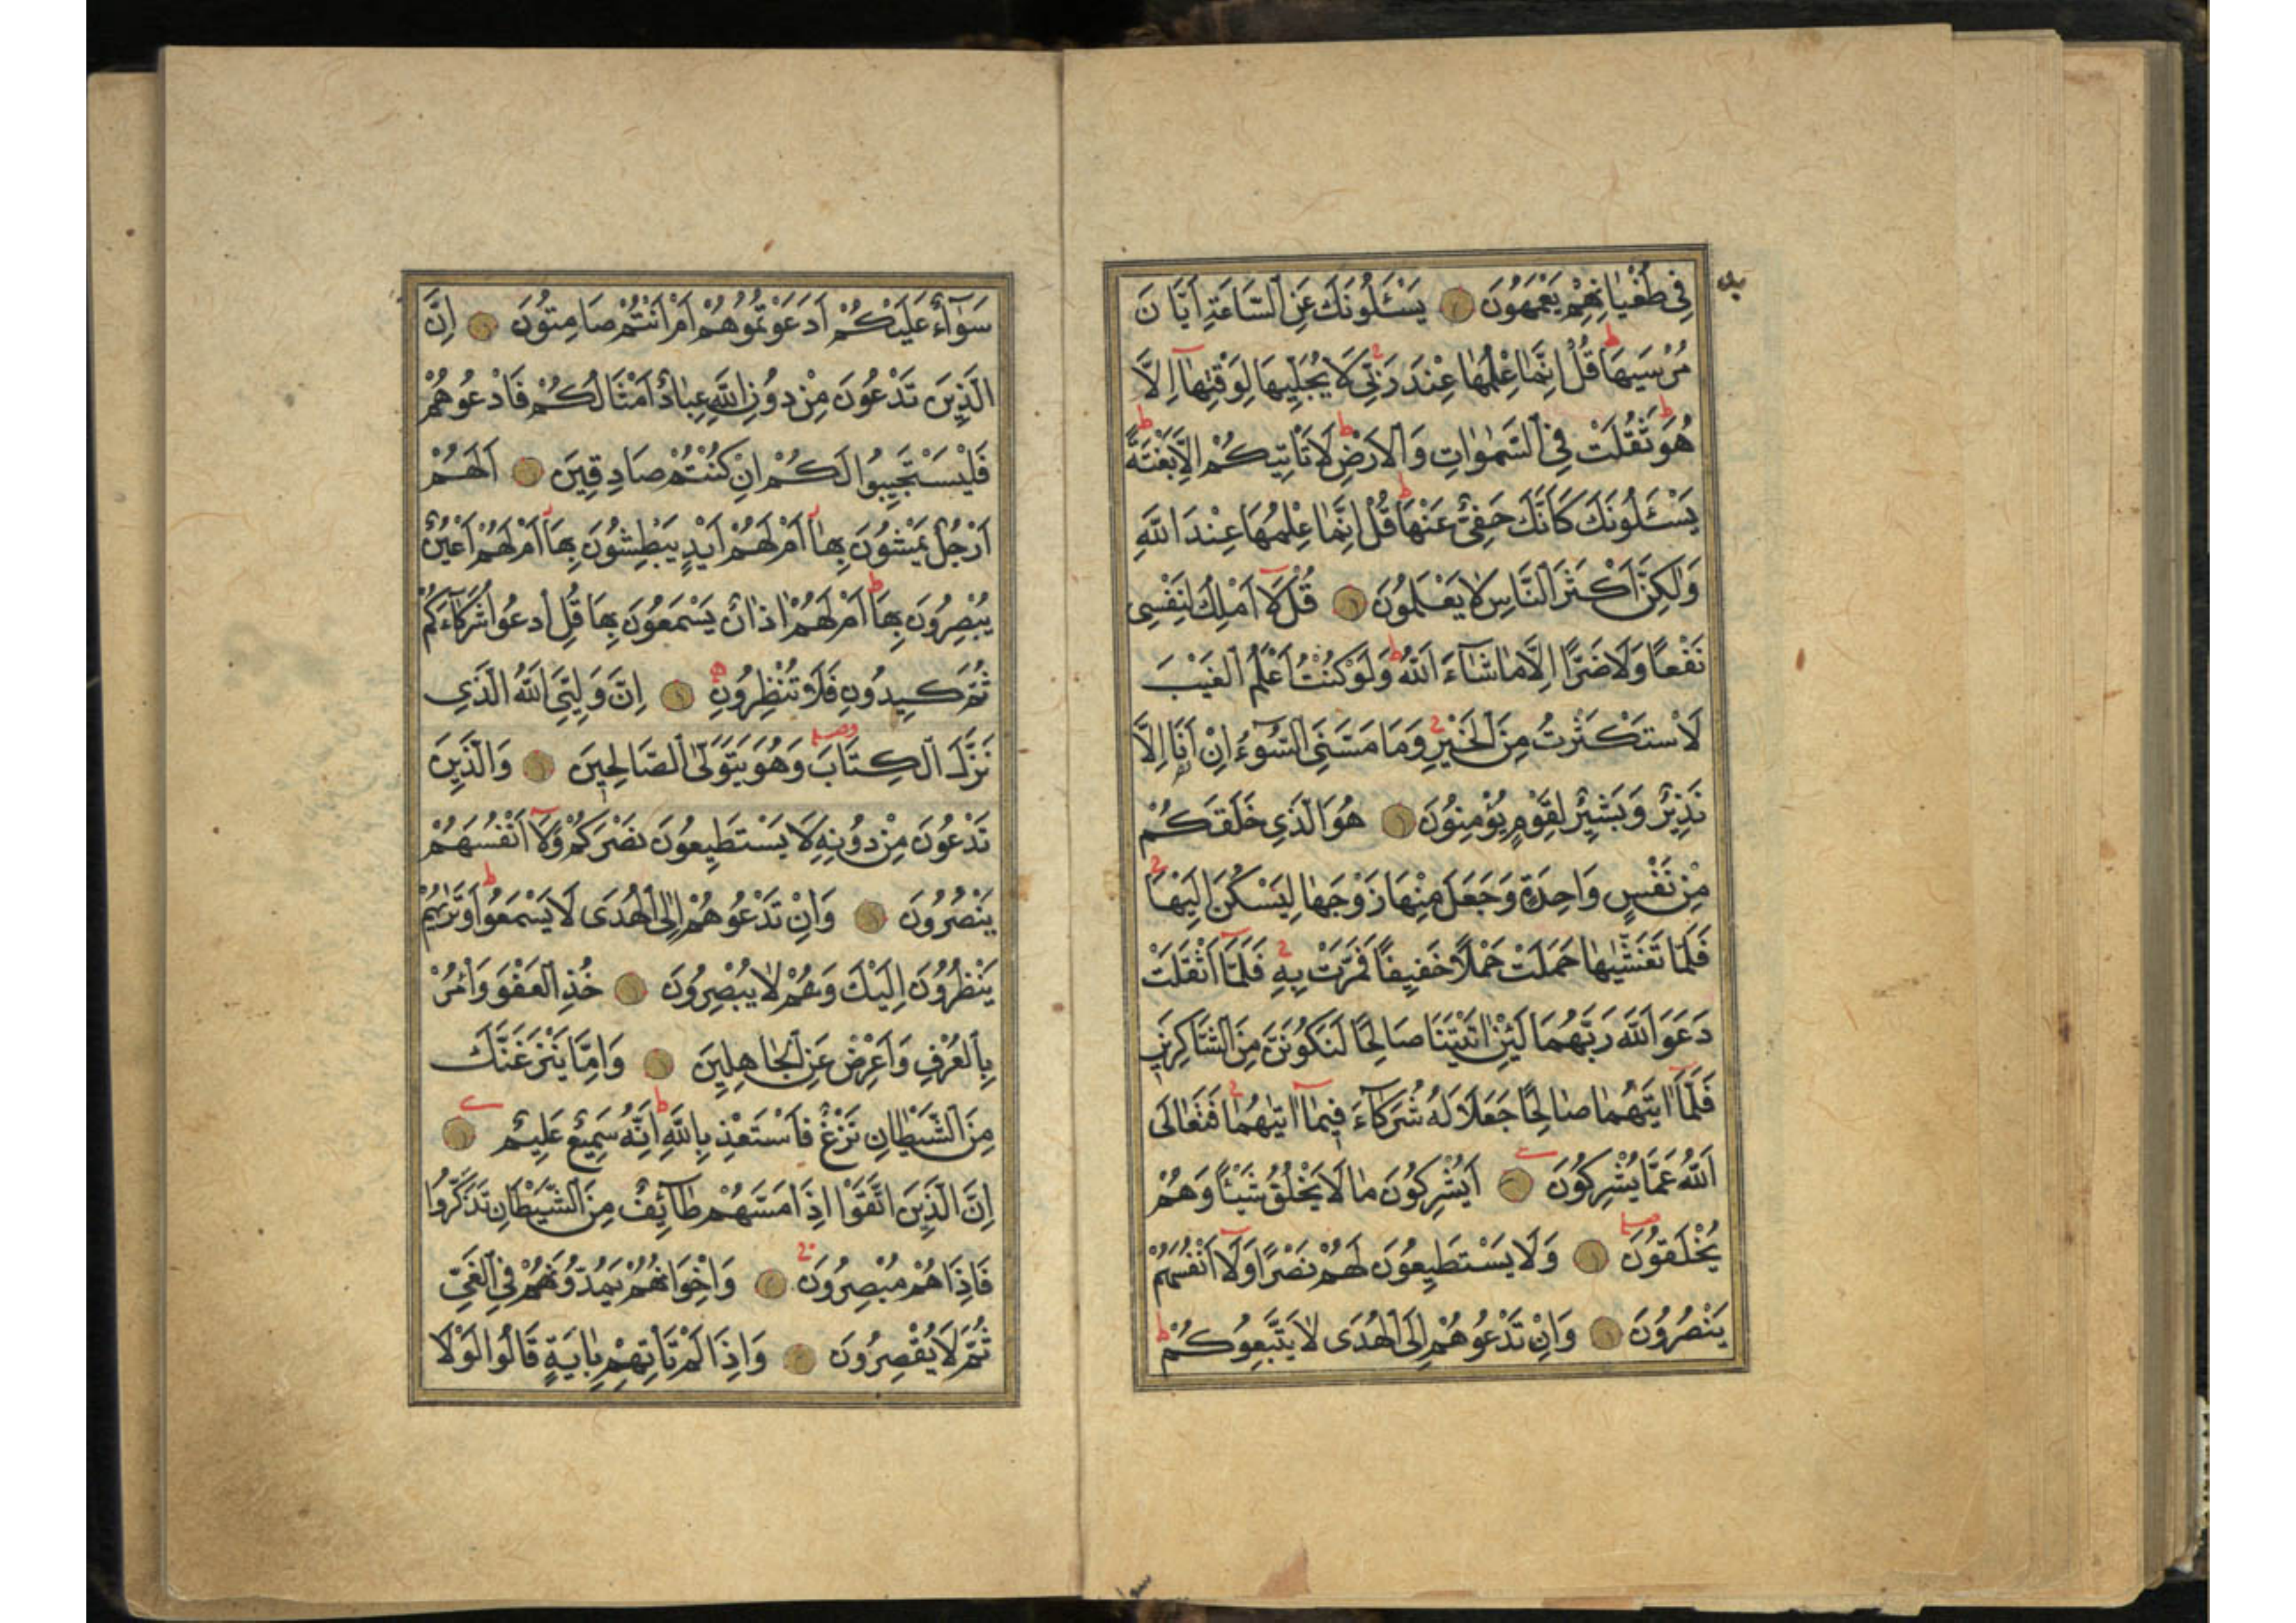 فِي طُغْيَانِهِمْ يَعْمَهُونَ يَسْـَٔلُونَكَ عَنِ السَّاعَةِ اَيَّانَ
مُرْسٰيهَا قُلْ اِنَّمَا عِلْمُهَا عِنْدَ رَبّ۪ي لَا يُجَلّ۪يهَا لِوَقْتِهَا اِلَّا
هُوَ ثَقُلَتْ فِي السَّمٰوَاتِ وَالْاَرْضِ لَا تَاْتِيكُمْ اِلَّا بَغْتَةً
يَسْـَٔلُونَكَ كَاَنَّكَ حَفِيٌّ عَنْهَا قُلْ اِنَّمَا عِلْمُهَا عِنْدَ اللّٰهِ
وَلٰكِنَّ اَكْثَرَ النَّاسِ لَا يَعْلَمُونَ قُلْ لَا اَمْلِكُ لِنَفْسِي
نَفْعًا وَلَا ضَرًّا اِلَّا مَا شَآءَ اللّٰهُ وَلَوْ كُنْتُ اَعْلَمُ الْغَيْبَ
لَاسْتَكْثَرْتُ مِنَ الْخَيْرِ وَمَا مَسَّنِيَ السُّوٓءُ اِنْ اَنَا اِلَّا
نَذِيرٌ وَبَشِيرٌ لِقَوْمٍ يُؤْمِنُونَ هُوَ الَّذِي خَلَقَكُمْ
مِنْ نَفْسٍ وَاحِدَةٍ وَجَعَلَ مِنْهَا زَوْجَهَا لِيَسْكُنَ اِلَيْهَا
فَلَمَّا تَغَشّٰيهَا حَمَلَتْ حَمْلًا خَفِيفًا فَمَرَّتْ بِهِ فَلَمَّآ اَثْقَلَتْ
دَعَوَا اللّٰهَ رَبَّهُمَا لَئِنْ اٰتَيْتَنَا صَالِحًا لَنَكُونَنَّ مِنَ الشَّاكِرِينَ
فَلَمَّآ اٰتٰيهُمَا صَالِحًا جَعَلَا لَهُ شُرَكَآءَ فِيمَآ اٰتٰيهُمَا فَتَعَالَى
اللّٰهُ عَمَّا يُشْرِكُونَ اَيُشْرِكُونَ مَا لَا يَخْلُقُ شَيْئًا وَهُمْ
يُخْلَقُونَ وَلَا يَسْتَطِيعُونَ لَهُمْ نَصْرًا وَلَآ اَنْفُسَهُمْ
يَنْصُرُونَ وَاِنْ تَدْعُوهُمْ اِلَى الْهُدَى لَا يَتَّبِعُوكُمْ
سَوَآءٌ عَلَيْكُمْ اَدَعَوْتُمُوهُمْ اَمْ اَنْتُمْ صَامِتُونَ اِنَّ
الَّذِينَ تَدْعُونَ مِنْ دُونِ اللّٰهِ عِبَادٌ اَمْثَالُكُمْ فَادْعُوهُمْ
فَلْيَسْتَجِيبُوا لَكُمْ اِنْ كُنْتُمْ صَادِقِينَ اَلَهُمْ
اَرْجُلٌ يَمْشُونَ بِهَآ اَمْ لَهُمْ اَيْدٍ يَبْطِشُونَ بِهَآ اَمْ لَهُمْ اَعْيُنٌ
يُبْصِرُونَ بِهَآ اَمْ لَهُمْ اٰذَانٌ يَسْمَعُونَ بِهَا قُلِ ادْعُوا شُرَكَآءَكُمْ
ثُمَّ كِيدُونِ فَلَا تُنْظِرُونِ اِنَّ وَلِيِّيَ اللّٰهُ الَّذِي
نَزَّلَ الْكِتَابَ وَهُوَ يَتَوَلَّى الصَّالِحِينَ وَالَّذِينَ
تَدْعُونَ مِنْ دُونِهِ لَا يَسْتَطِيعُونَ نَصْرَكُمْ وَلَآ اَنْفُسَهُمْ
يَنْصُرُونَ وَاِنْ تَدْعُوهُمْ اِلَى الْهُدَى لَا يَسْمَعُوا وَتَرٰيهُمْ
يَنْظُرُونَ اِلَيْكَ وَهُمْ لَا يُبْصِرُونَ خُذِ الْعَفْوَ وَاْمُرْ
بِالْعُرْفِ وَاَعْرِضْ عَنِ الْجَاهِلِينَ وَاِمَّا يَنْزَغَنَّكَ
مِنَ الشَّيْطَانِ نَزْغٌ فَاسْتَعِذْ بِاللّٰهِ اِنَّهُ سَمِيعٌ عَلِيمٌ
اِنَّ الَّذِينَ اتَّقَوْا اِذَا مَسَّهُمْ طَآئِفٌ مِنَ الشَّيْطَانِ تَذَكَّرُوا
فَاِذَا هُمْ مُبْصِرُونَ وَاِخْوَانُهُمْ يَمُدُّونَهُمْ فِي الْغَيِّ
ثُمَّ لَا يُقْصِرُونَ وَاِذَا لَمْ تَاْتِهِمْ بِاٰيَةٍ قَالُوا لَوْلَا